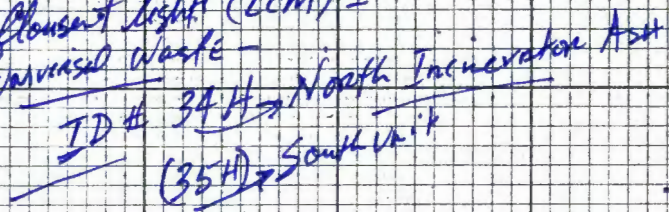 light (LCM) -
Universal Waste -
ID # 34H → North Incinerator Ash
(35H) → South Unit